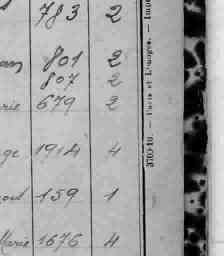 783 2
801 2
807 2
rie 679 2
ge 1914 4
159 1
Marie 1676 4
— Paris et Limoges. —